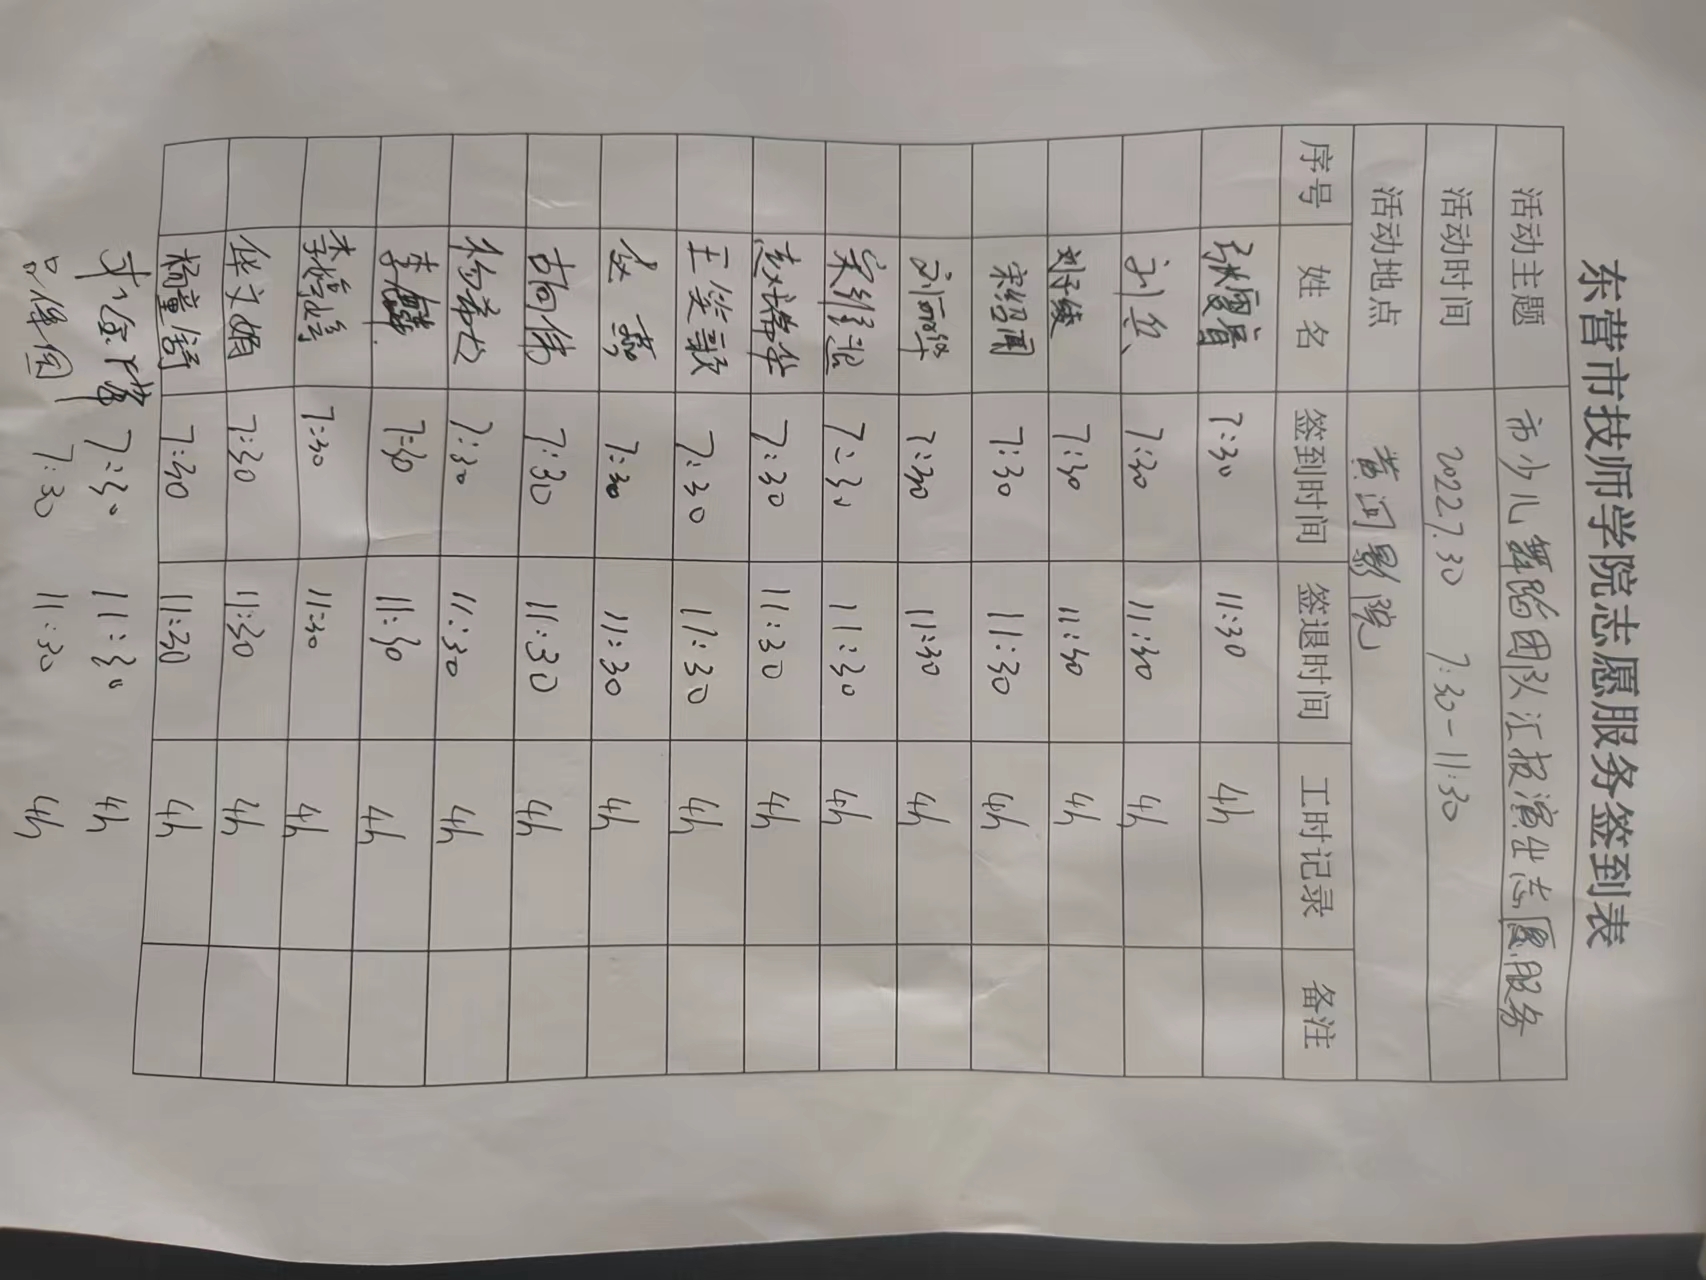 东营市技师学院志愿服务签到表
活动主题 市少儿舞蹈团队汇报演出志愿服务
活动时间 2022.7.30 7:30-11:30
活动地点 黄河影院
序号 姓名 签到时间 签退时间 工时记录 备注
张夏晋 7:30 11:30 4h
刘兵 7:30 11:30 4h
刘子绫 7:30 11:30 4h
宋绍闻 7:30 11:30 4h
刘丽华 7:30 11:30 4h
7:30 11:30 4h
7:30 11:30 4h
王笑歌 7:30 11:30 4h
赵燕 7:30 11:30 4h
胡伟 7:30 11:30 4h
7:30 11:30 4h
李 7:30 11:30 4h
李婷婷 7:30 11:30 4h
任文娟 7:30 11:30 4h
杨童 7:30 11:30 4h
7:30 11:30 4h
7:30 11:30 4h